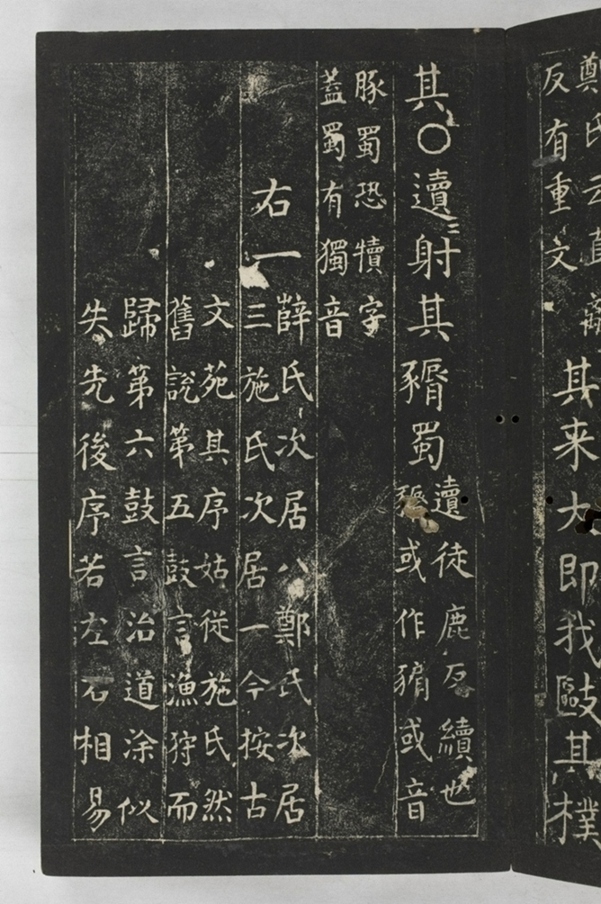 鄭氏云
反有重文
其来大即我敺其樸
其〇遺〻射其豣蜀
遺徒鹿反續也
或作豣或音
豚蜀恐犢字
蓋蜀有獨音
右一
薛氏次居八鄭氏次居
三施氏次居一今按古
文苑其序姑從施氏然
舊說第五鼓言漁狩而
歸第六鼓言治道涂似
失先後序若左右相易